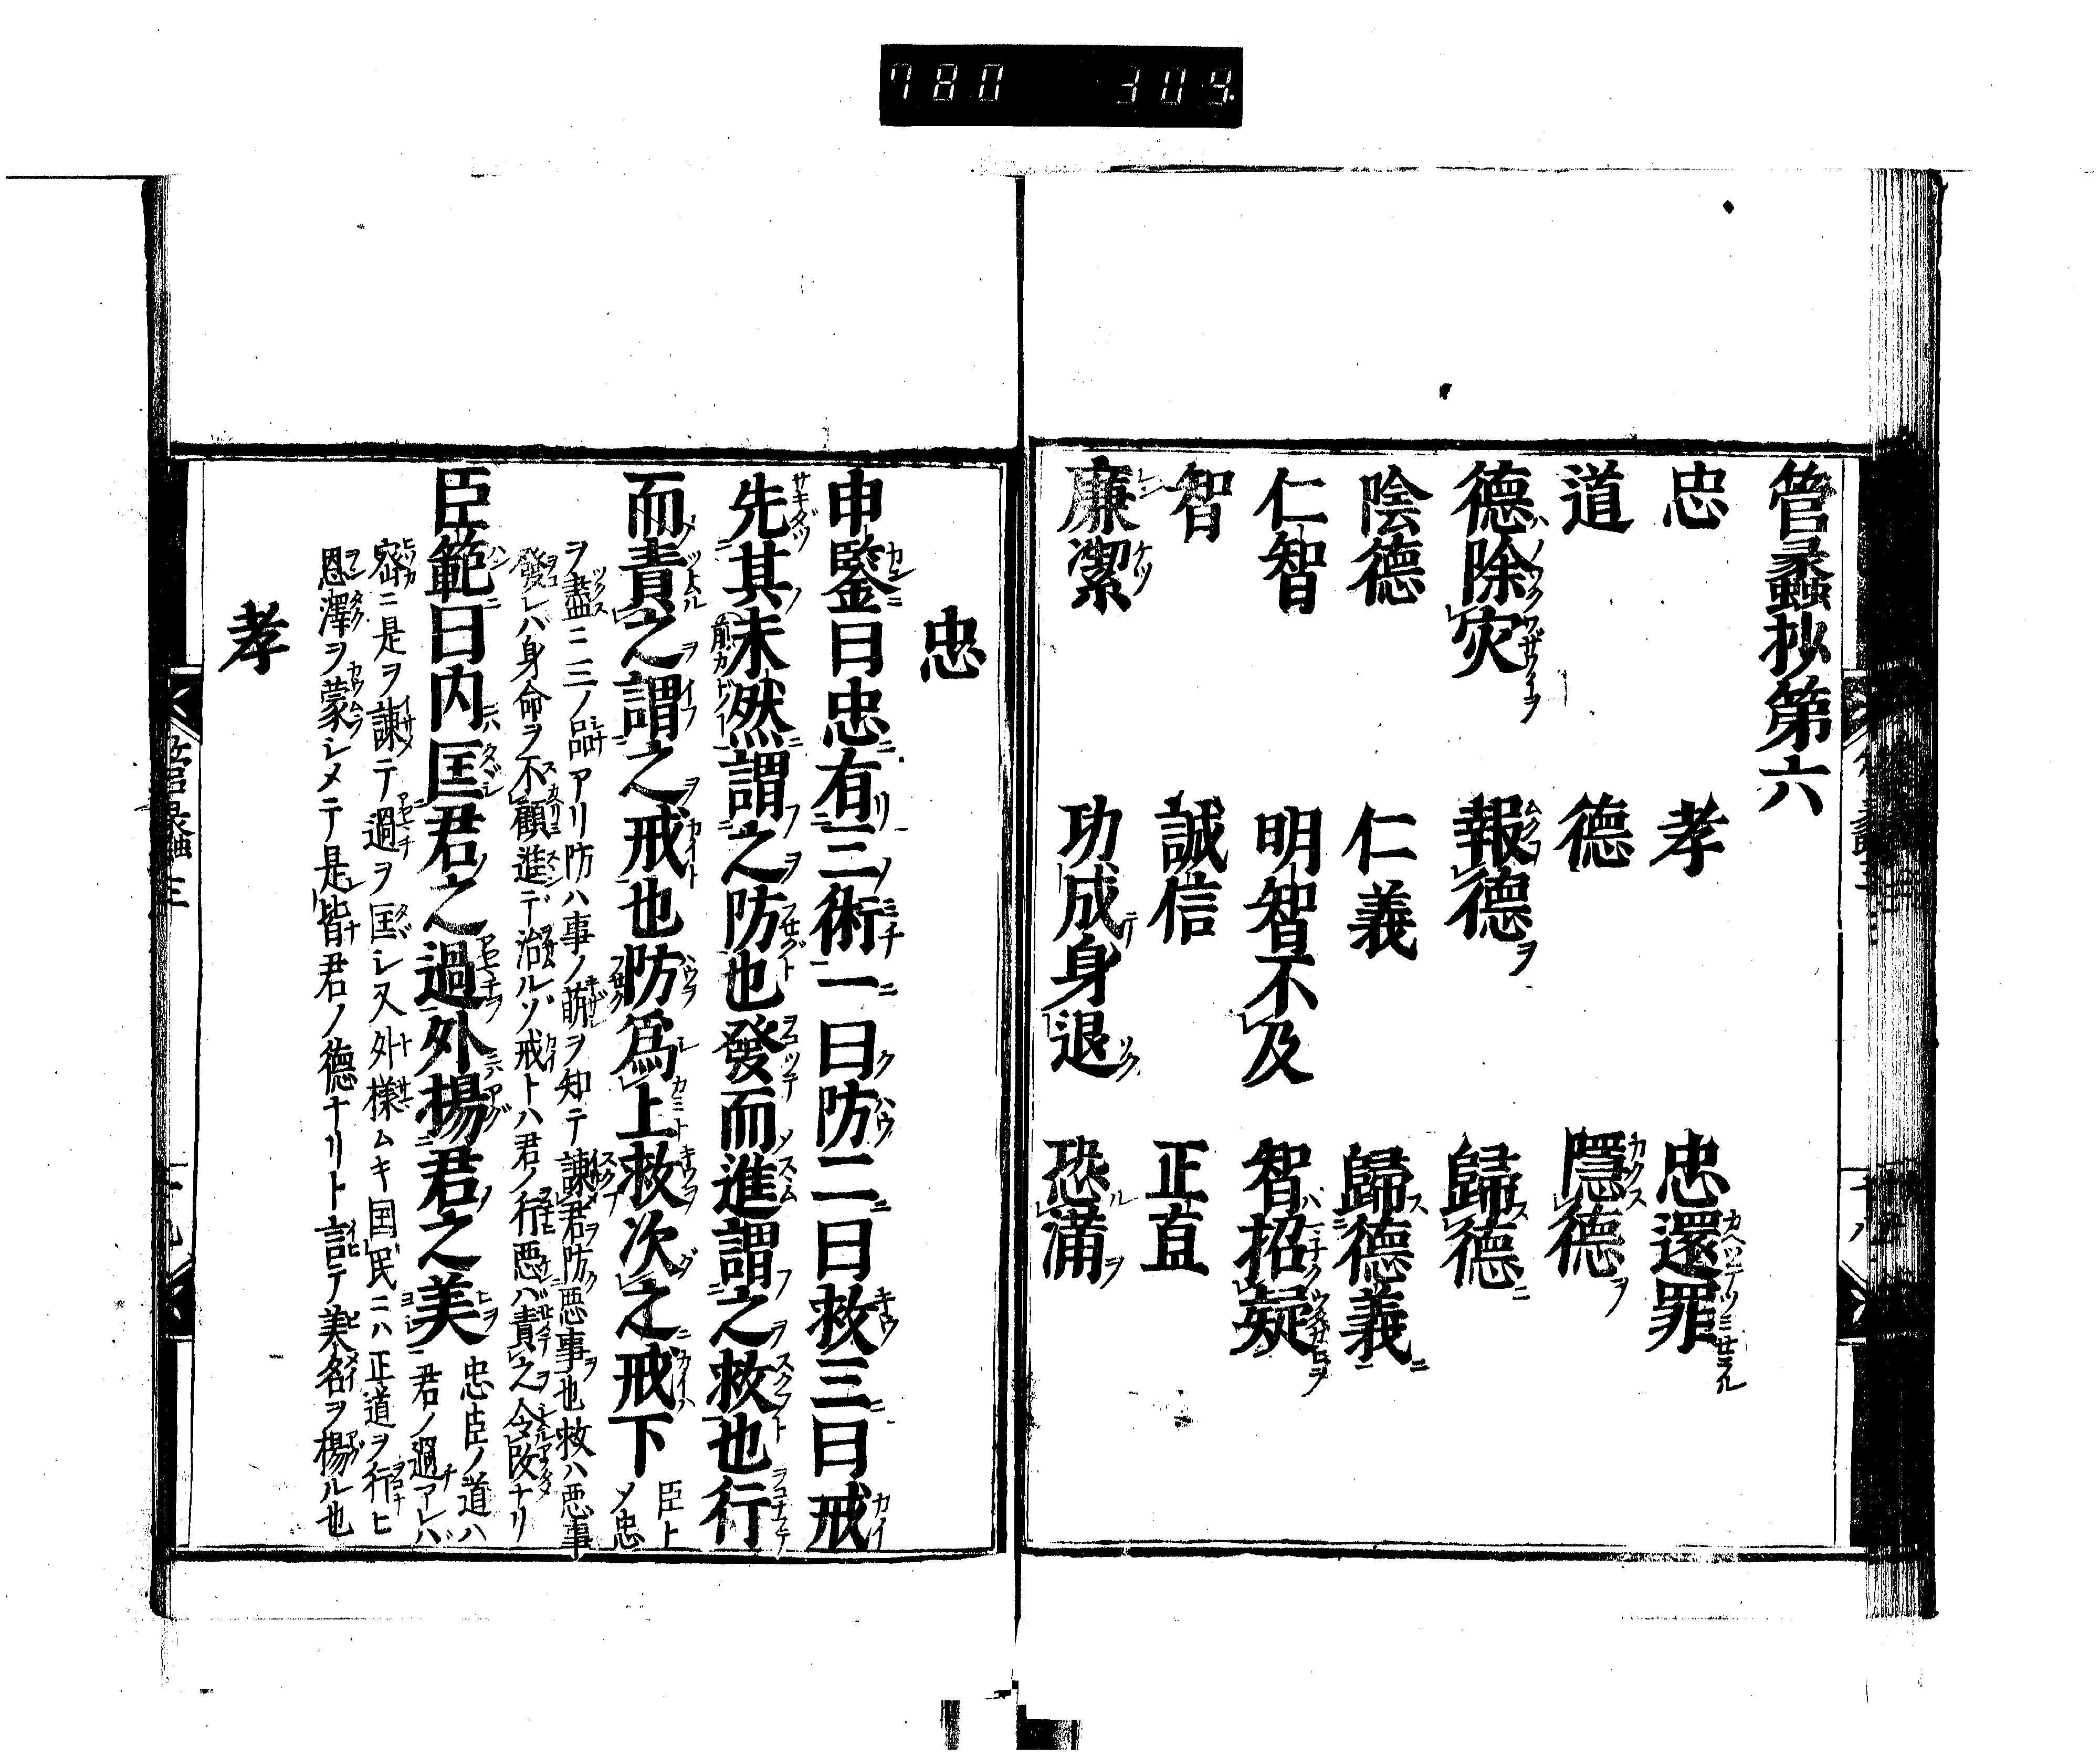 780 304
管蠡抄第六
忠 孝 忠還罪
道 德 隱德
德除灾 報德 歸德
陰德 仁義 歸德義
仁智 明智不及 智招疑
智 誠信 正直
廉潔 功成身退 恐滿
忠
申鑒曰忠有三術一曰防二曰救三曰戒
先其未然謂之防也發而進謂之救也行
而責之謂之戒也防爲上救次之戒下 臣トノ忠
ヲ盡ニ三ノ品アリ防ハ事ノ萌ヲ知テ諫君防悪事也救ハ悪事
發レハ身命ヲ不顧進デ治ルソ戒トハ君ノ行悪バ責之令改ナリ
臣範曰内匡君之過外揚君之美 忠臣ノ道ハ君ノ過アレバ
密ニ是ヲ諫テ過ヲ匡シ又外樣ムキ国民ニハ正道ヲ行ヒ
恩澤ヲ蒙シメテ是皆君ノ德ナリト言テ美名ヲ楊ル也
孝